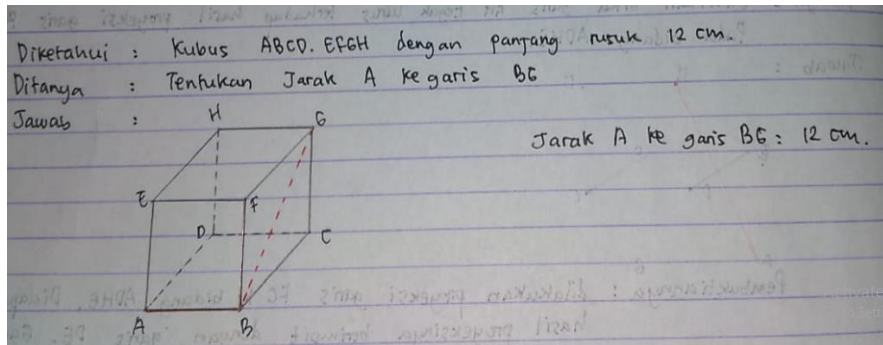 Diketahui : Kubus ABCD. EFGH dengan panjang rusuk 12 cm.
Ditanya : Tentukan Jarak A ke garis BG
Jawab :
H G
Jarak A ke garis BG : 12 cm.
E F
D C
A B